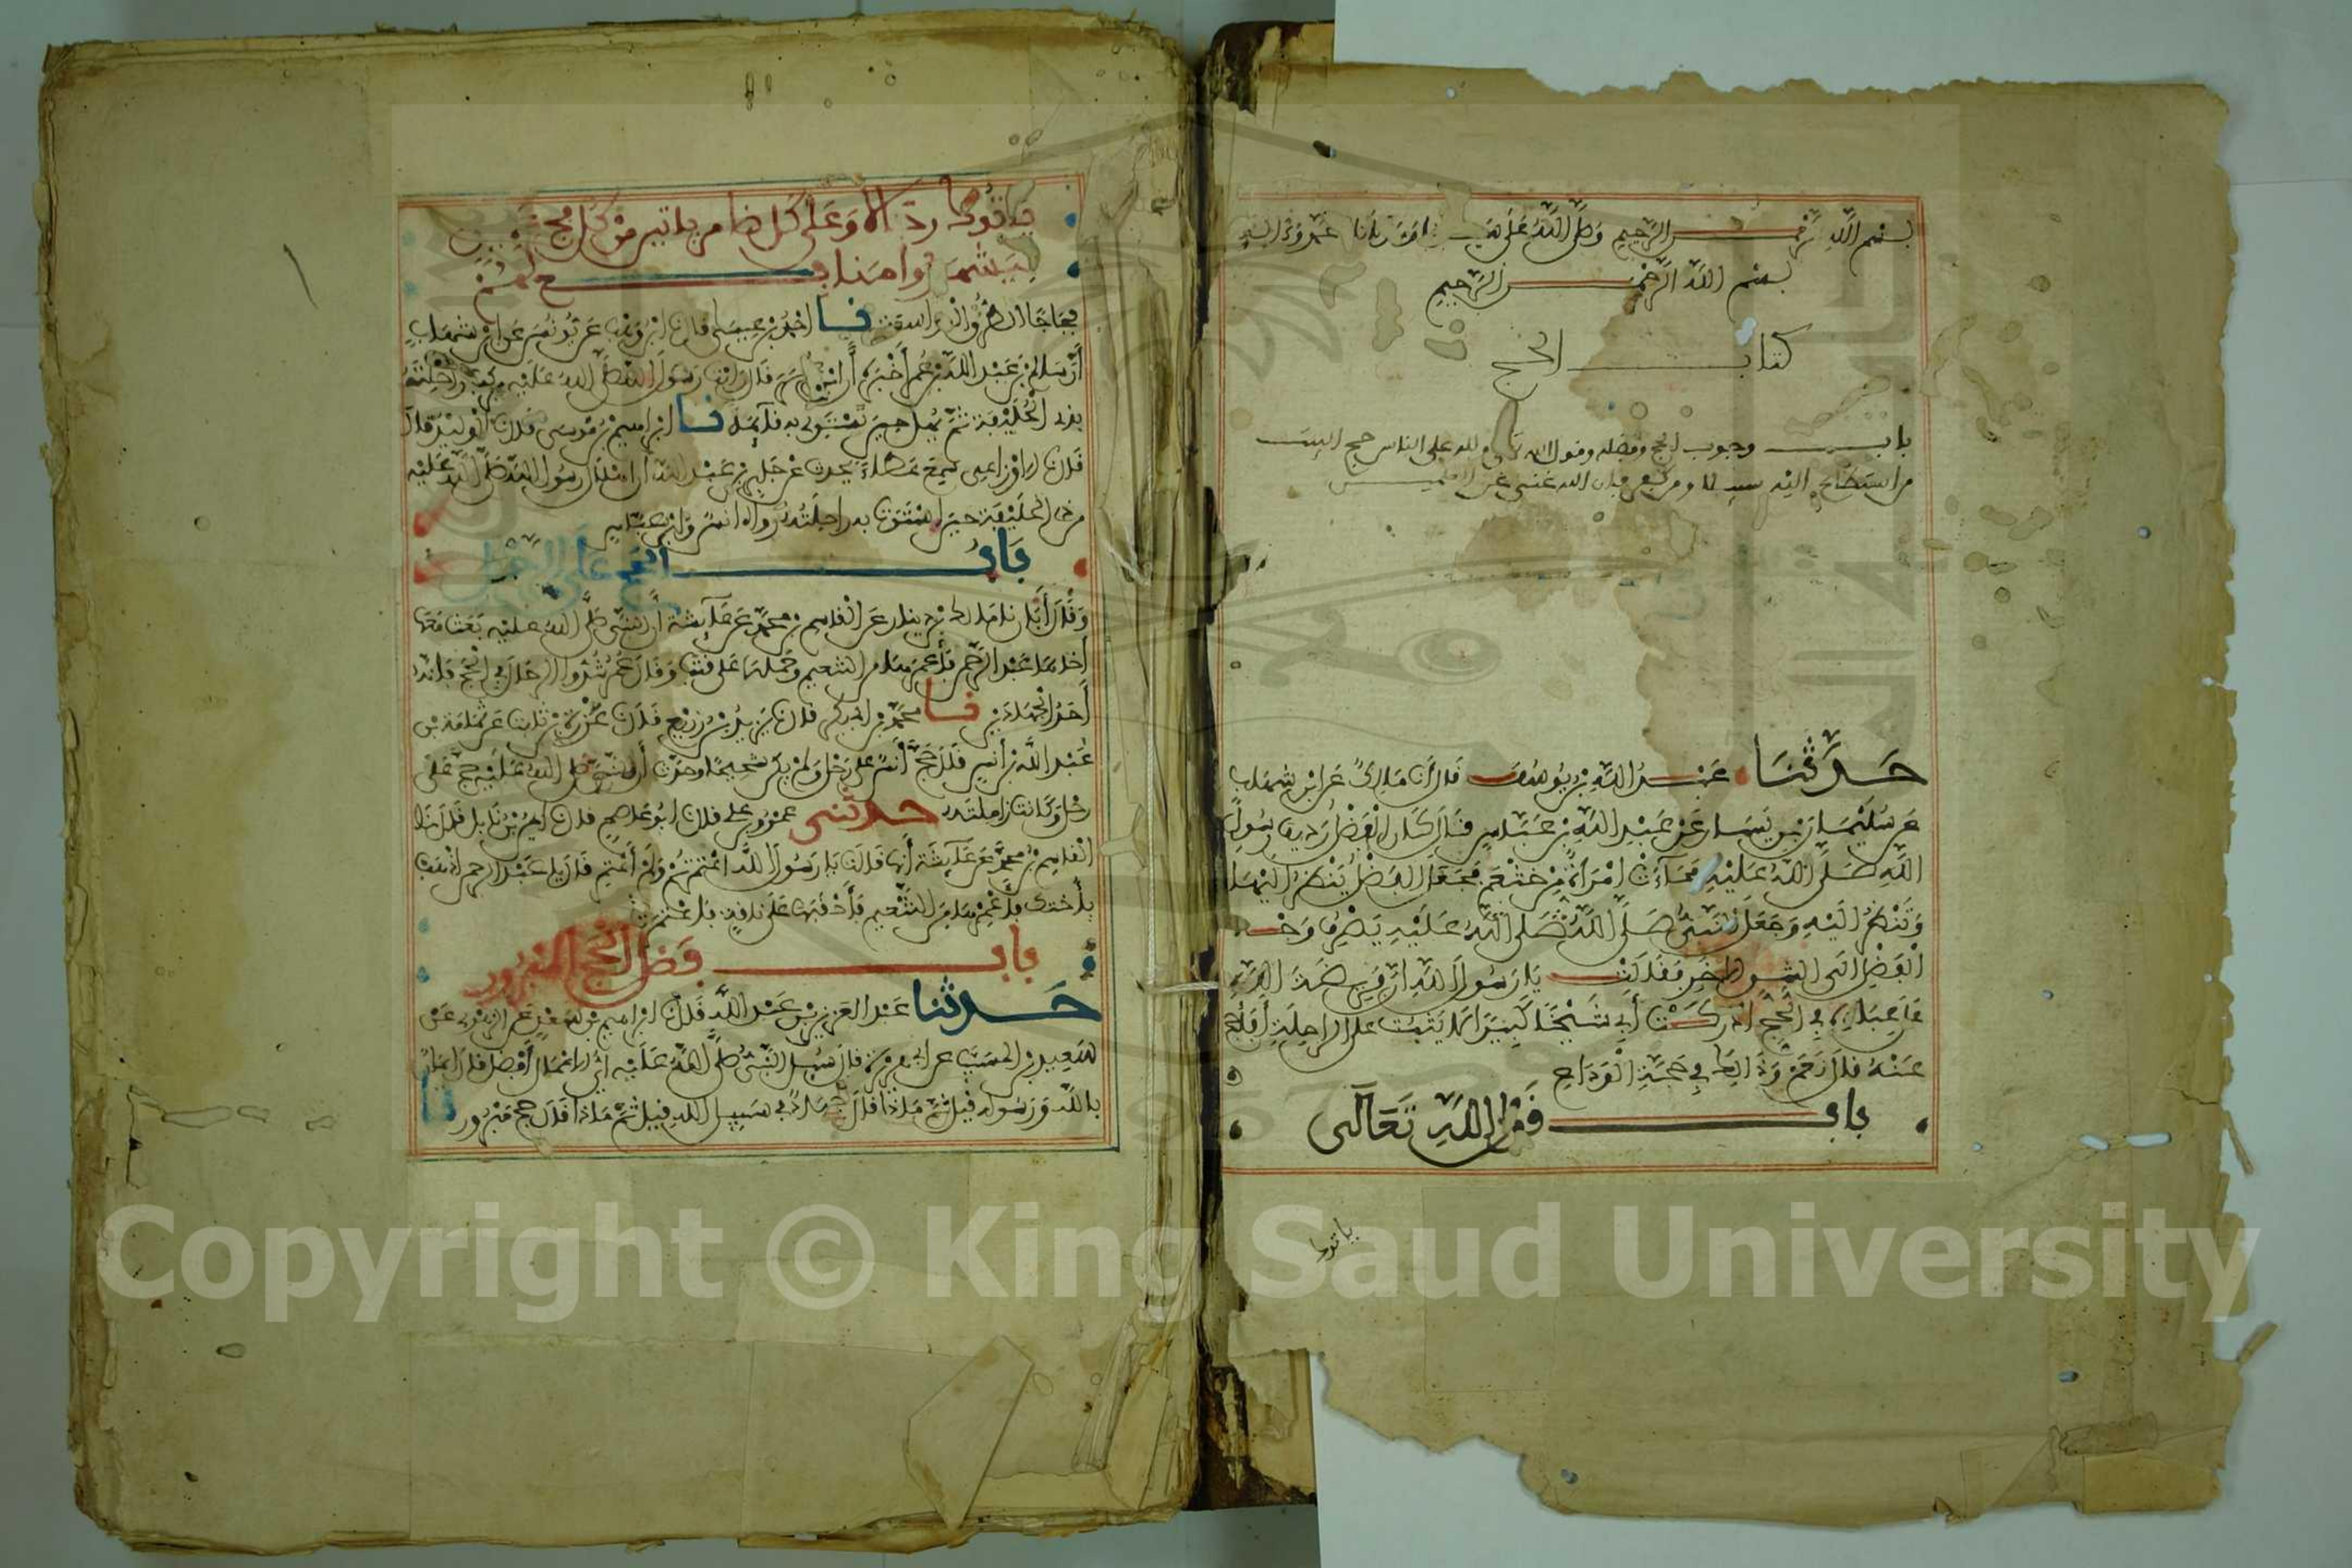 بسم الله الرحمن الرحيم وصلى الله على
بسم الله الرحمن الرحيم
كتاب الحج
باب وجوب الحج وفضله وقول الله تعالى ولله على الناس حج البيت
من استطاع اليه سبيلا ومن كفر فان الله غني عن العلمين
حدثنا عبد الله بن يوسف قال انا مالك عن ابن شهاب
عن سليمان بن يسار عن عبد الله بن عباس قال كان الفضل رديف رسول
الله صلى الله عليه فجاءت امرأة من خثعم فجعل الفضل ينظر اليها
وتنظر اليه وجعل النبي صلى الله صلى الله عليه يصرف وجه
الفضل الى الشق الاخر فقالت يا رسول الله ان فريضة الله
على عباده في الحج ادركت أبي شيخا كبيرا لا يثبت على الراحلة أفأحج
عنه قال نعم وذالك في حجة الوداع
باب قول الله تعالى
ياتوك
ياتوك رجالا وعلى كل ضامر ياتين من كل فج عميق
ليشهدوا منافع لهم
فجاجا الطرق الواسعة نا احمد بن عيسى قال نا ابن وهب عن يونس عن ابن شهاب
أن سالم بن عبد الله بن عمر أخبره أن ابن عمر قال رايت رسول الله صلى الله عليه يركب راحلته
بذي الحليفة ثم يهل حين تستوي به قايمة نا ابراهيم بن موسى قال نا الوليد قال
قال نا الاوزاعي سمع عطاء يحدث عن جابر بن عبد الله أن اهلال رسول الله صلى الله عليه
من ذي الحليفة حين استوت به راحلته رواه انس وابن عباس
باب الحج على الرحل
وقال أبان نا مالك بن دينار عن القاسم بن محمد عن عايشة أن النبي صلى الله عليه بعث معها
أخاها عبد الرحمن فأعمرها من التنعيم وحملها على قتب وقال عمر شدوا الرحال في الحج فانه
أحد الجهادين نا محمد بن ابي بكر قال نا يزيد بن زريع قال نا عزرة بن ثابت عن ثمامة بن
عبد الله بن أنس قال حج أنس على رحل ولم يكن شحيحا وحدث أن النبي صلى الله عليه حج على
رحل وكانت زاملته حدثني عمرو بن علي قال نا ابو عاصم قال نا ايمن بن نابل قال نا
القاسم بن محمد عن عايشة أنها قالت يا رسول الله اعتمرتم ولم أعتمر قال يا عبد الرحمن اذهب
بأختك فأعمرها من التنعيم فأحقبها على ناقة فاعتمرت
باب فضل الحج المبرور
حدثنا عبد العزيز بن عبد الله قال نا ابراهيم بن سعد عن الزهري عن
سعيد بن المسيب عن ابي هريرة قال سيل النبي صلى الله عليه أي الاعمال أفضل قال ايمان
بالله ورسوله قيل ثم ماذا قال جهاد في سبيل الله قيل ثم ماذا قال حج مبرور نا
Copyright © King Saud University